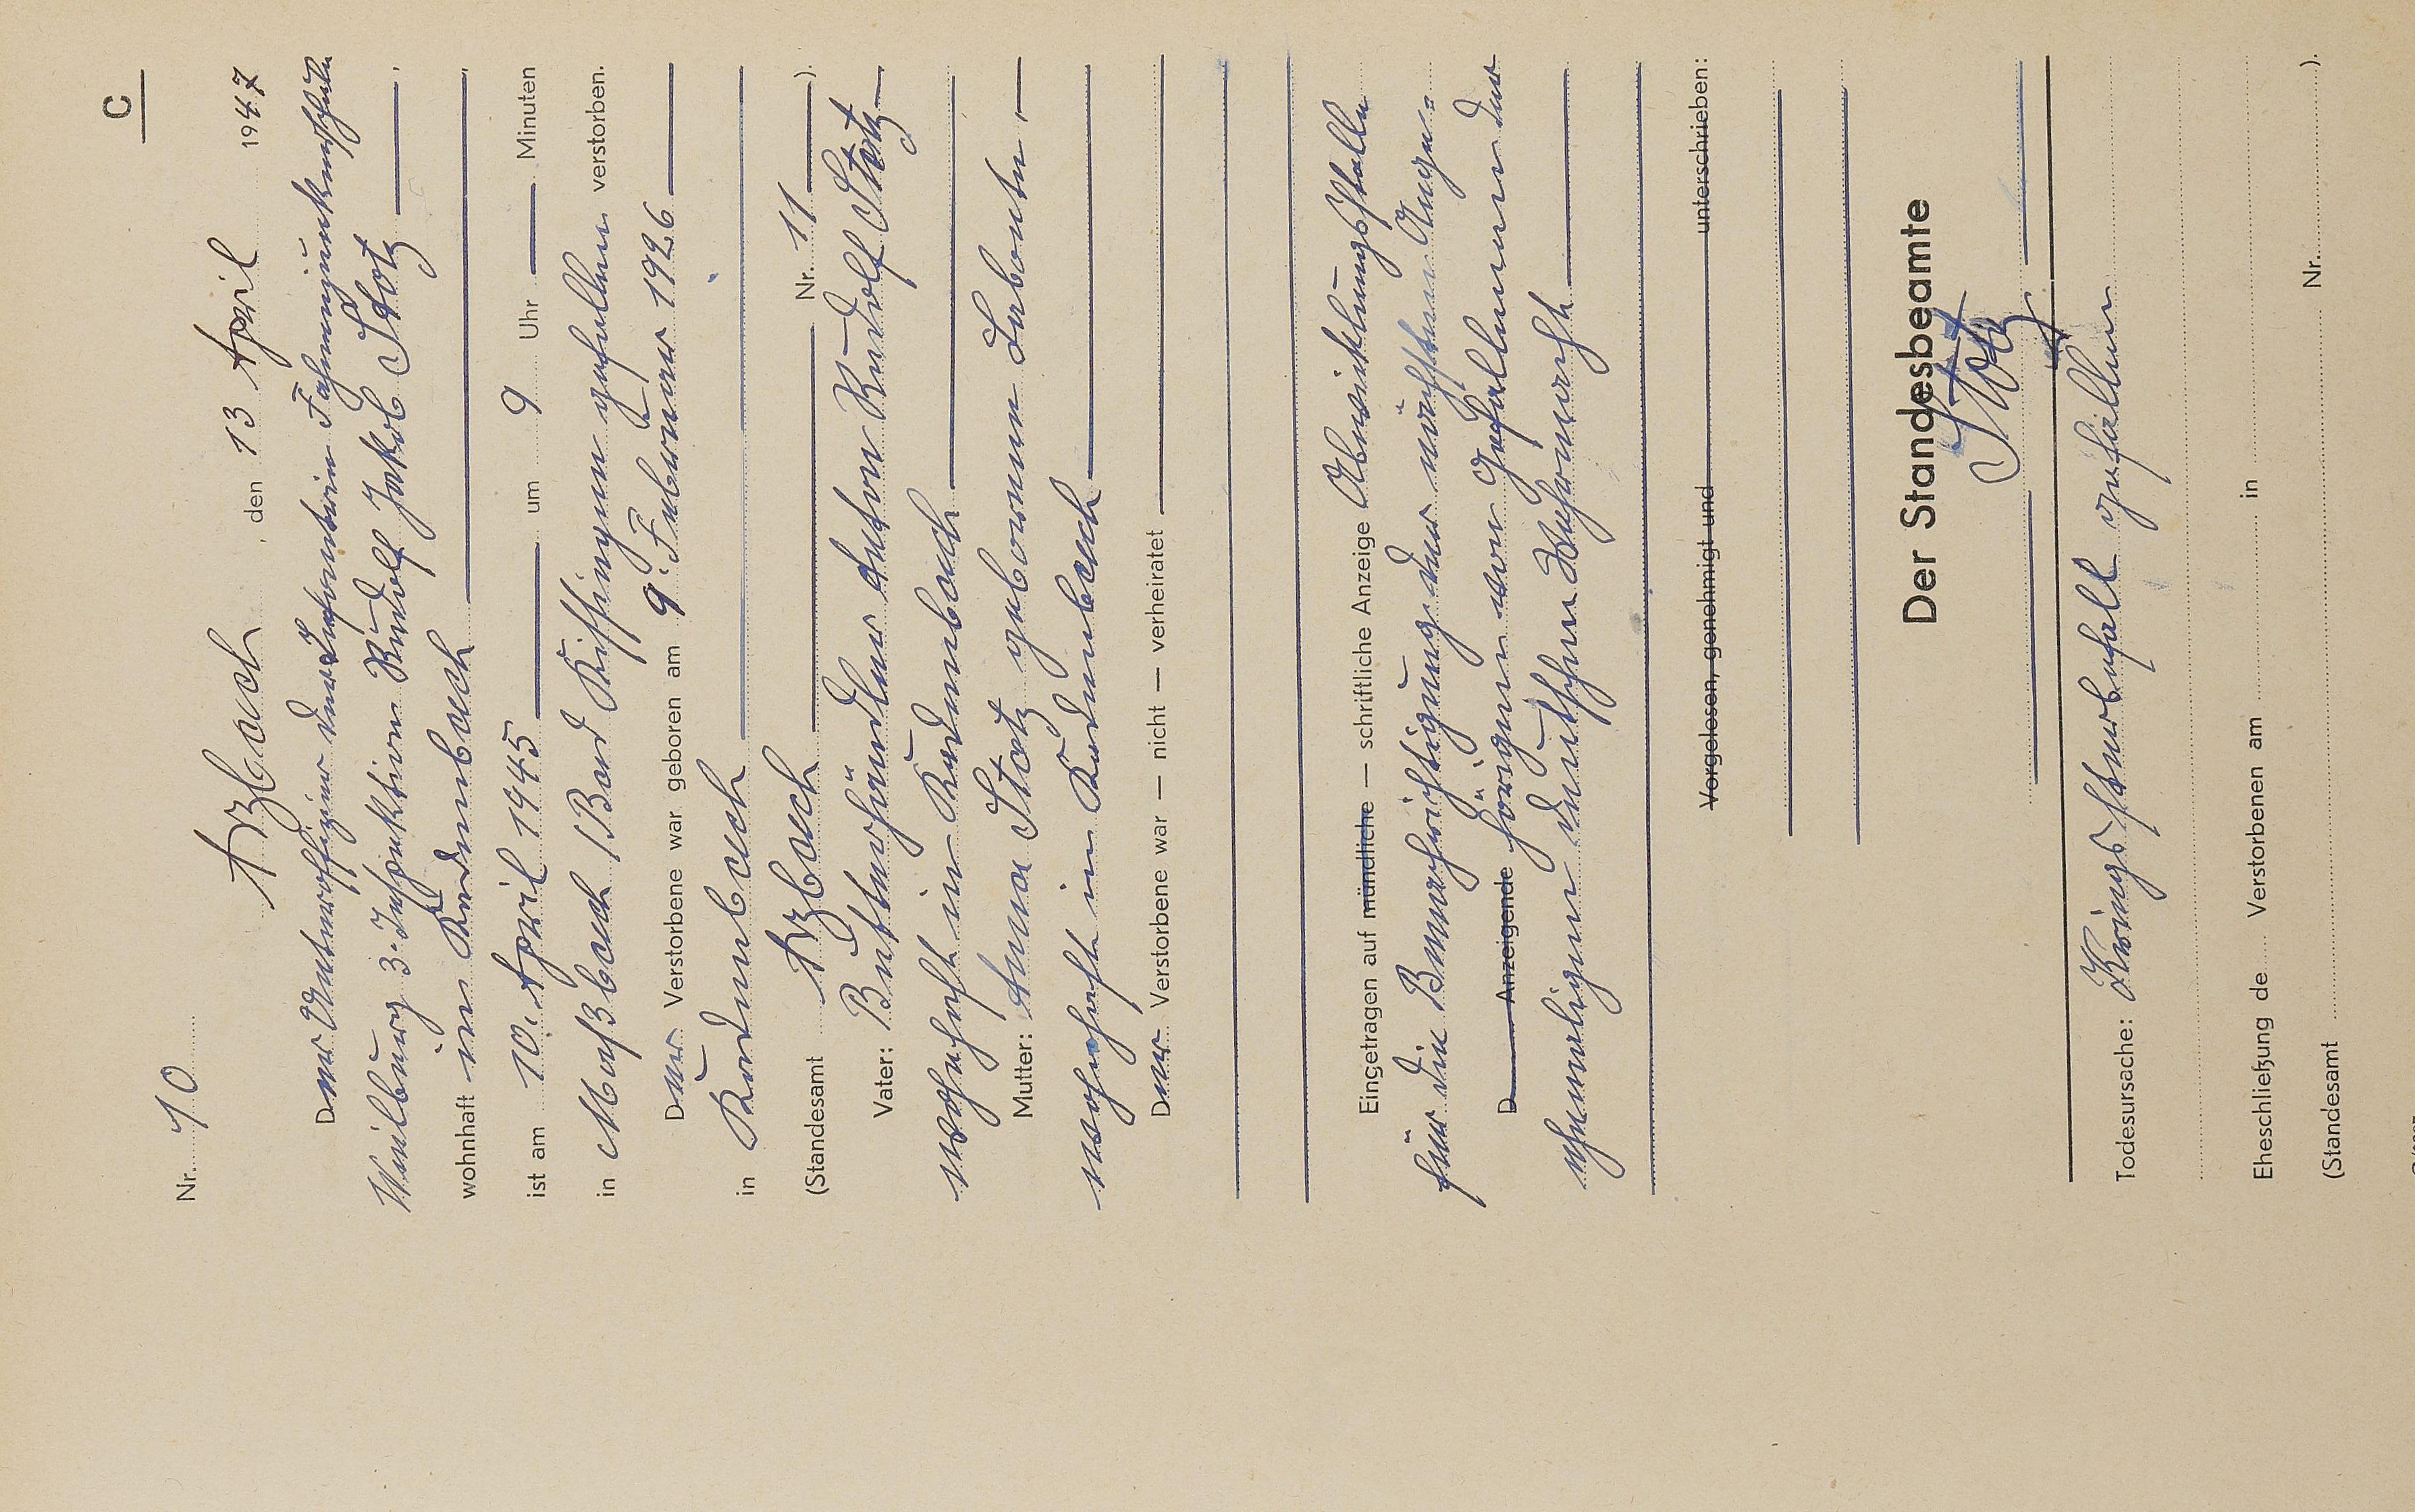 C
Nr. 10
Arzbach, den 13 April 1947
Der Unteroffizier der Infanterie Fahnenjunkerschule
Weilburg 3. Inspektion Rudolf Jakob Stotz
wohnhaft in Kadenbach
ist am 10. April 1945 um 9 Uhr Minuten
in Maßbach / Bad Kissingen gefallen verstorben.
Der Verstorbene war geboren am 9. Februar 1926
in Kadenbach
(Standesamt Arzbach Nr. 11).
Vater: Butterhändler Anton Rudolf Stotz
wohnhaft in Kadenbach
Mutter: Anna Stotz geborene Labonte,
wohnhaft in Kadenbach
Der Verstorbene war — nicht — verheiratet
Eingetragen auf mündliche — schriftliche Anzeige Abwicklungsstelle
für die Benachrichtigung der nächsten Ange=
D Anzeigende hörigen von Gefallenen der
ehemaligen deutschen Wehrmacht
Vorgelesen, genehmigt und unterschrieben:
Der Standesbeamte
Stotz
Todesursache: Kriegssterbefall gefallen
Eheschließung de Verstorbenen am in
(Standesamt Nr. ).